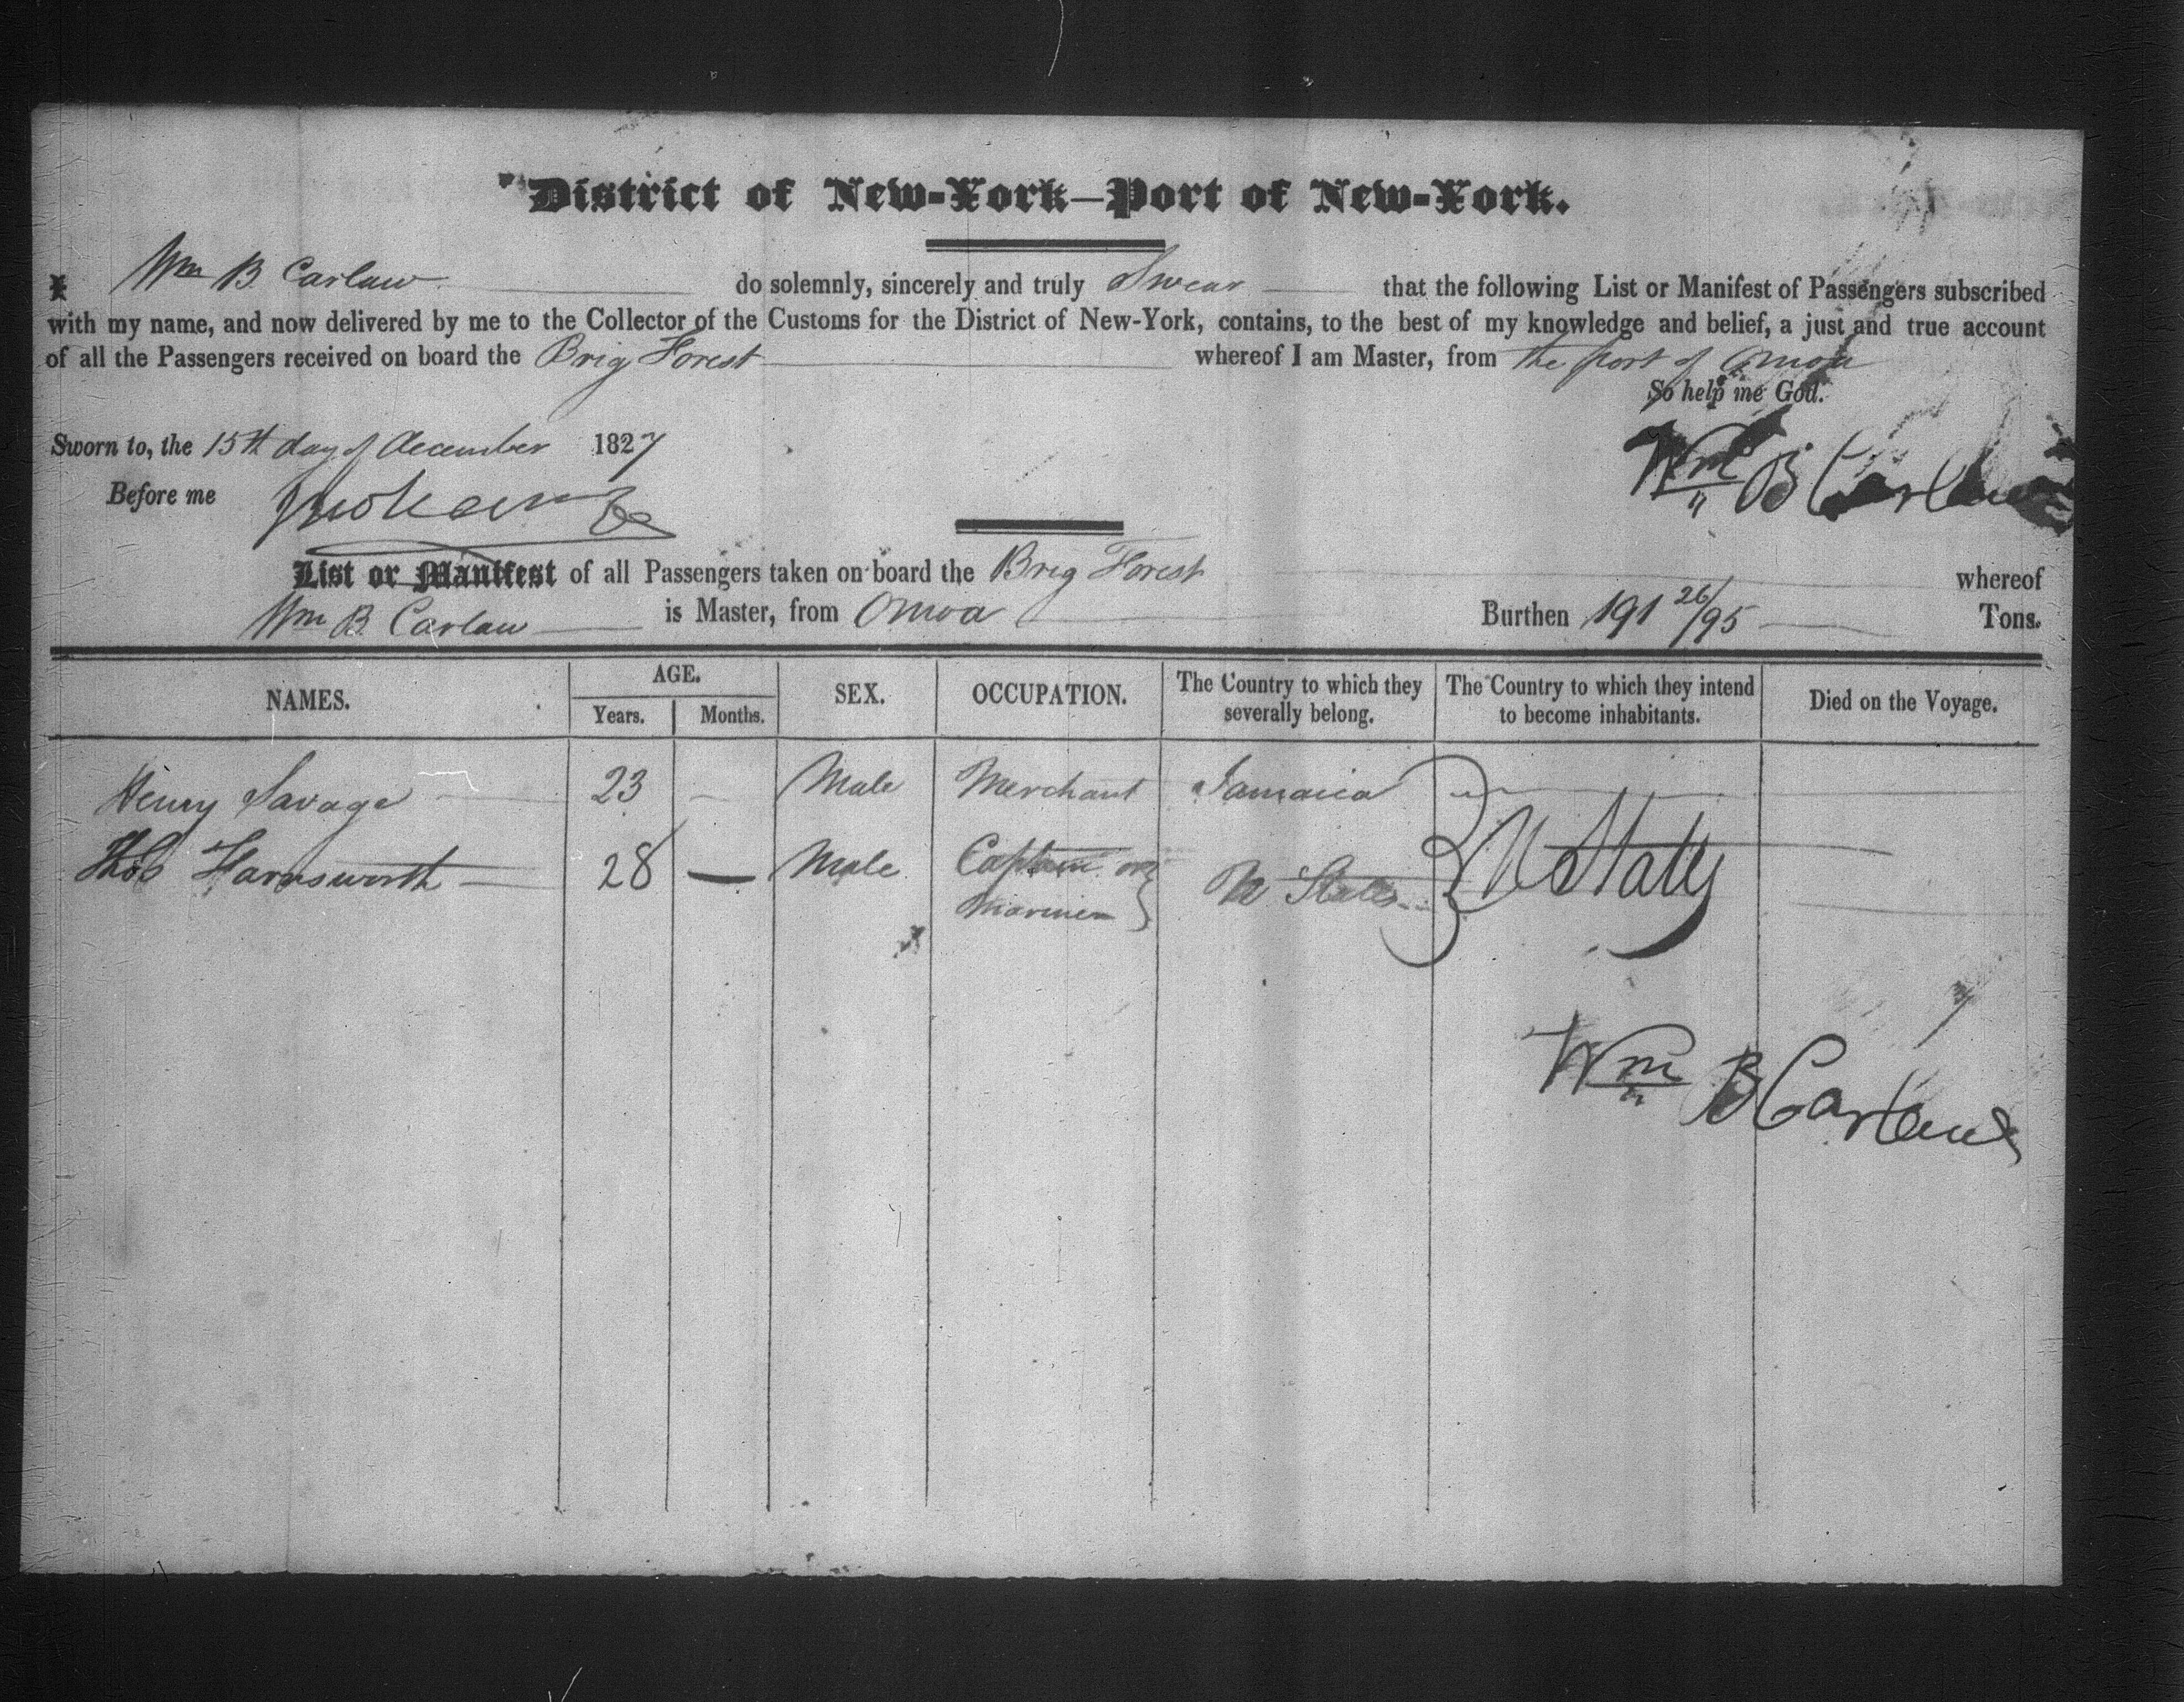 District of New-York—Port of New-York.
I Wm B Carlaw do solemnly, sincerely and truly Swear that the following List or Manifest of Passengers subscribed
with my name, and now delivered by me to the Collector of the Customs for the District of New-York, contains, to the best of my knowledge and belief, a just and true account
of all the Passengers received on board the Brig Forest whereof I am Master, from the port of Omoa
So help me God.
Sworn to, the 15th day of December 1827
Wm B Carlaw
Before me
List or Manifest of all Passengers taken on board the Brig Forest whereof
Wm B Carlaw is Master, from Omoa Burthen 191 26/95 Tons.
NAMES. AGE. Years. Months. SEX. OCCUPATION. The Country to which they severally belong. The Country to which they intend to become inhabitants. Died on the Voyage.
Henry Savage 23 — Male Merchant Jamaica
Thos Harnsworth 28 — Male Captain or U States U States
Mariner
Wm B Carlaw